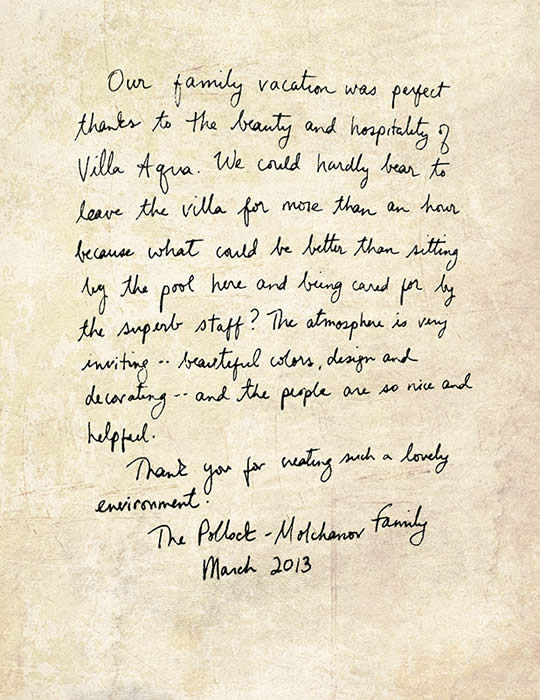 Our family vacation was perfect
thanks to the beauty and hospitality of
Villa Aqua. We could hardly bear to
leave the villa for more than an hour
because what could be better than sitting
by the pool here and being cared for by
the superb staff? The atmosphere is very
inviting -- beautiful colors, design and
decorating -- and the people are so nice and
helpful.
Thank you for creating such a lovely
environment.
The Pollock - Molchanov family
March 2013